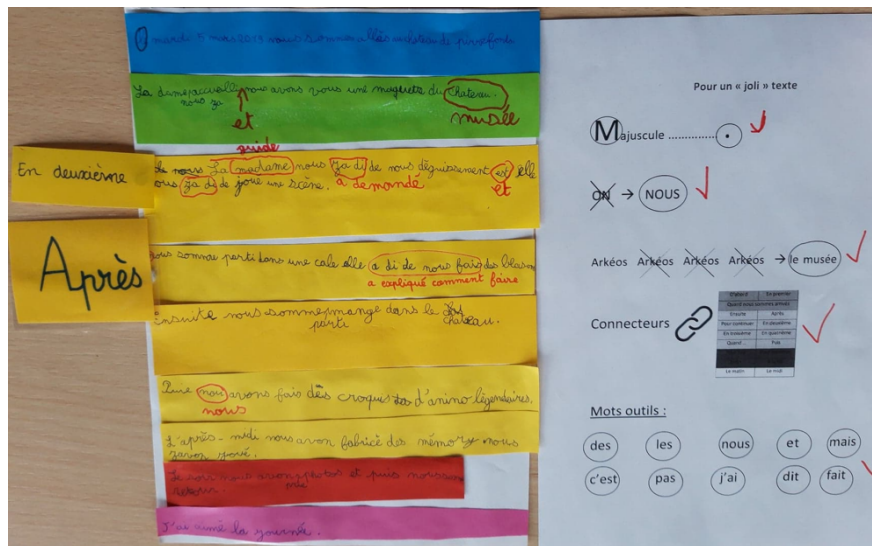 mardi 5 mars 2013 nous sommes allés au château de pierrefonds
La dame accuelle nous avons vous une maguette du Chateau.
nous za
et
musée
guide
En deuxième
La madame nous za di de nous déguissement est elle
nous za di de joué une scène. a demandé
et
Après
nous somme parti dans une cale elle a di de nous fais des blason
a expliqué comment faire
Ensuite nous sommemange dans le
parti
château.
nou avons fais des croques d'animo légendaires.
nous
L'après-midi nous avon fabricé des mémory nous
zavon joué.
Le soir nous avon photos et puis nous
retour.
J'ai aimé la journée.
Pour un « joli » texte
Majuscule ............... .
ON → NOUS
Arkéos Arkéos Arkéos Arkéos → le musée
Connecteurs
D'abord En premier
Quand nous sommes arrivés
Ensuite Après
Pour continuer En deuxième
En troisième En quatrième
Quand Puis
Le matin Le midi
Mots outils :
des les nous et mais
c'est pas j'ai dit fait